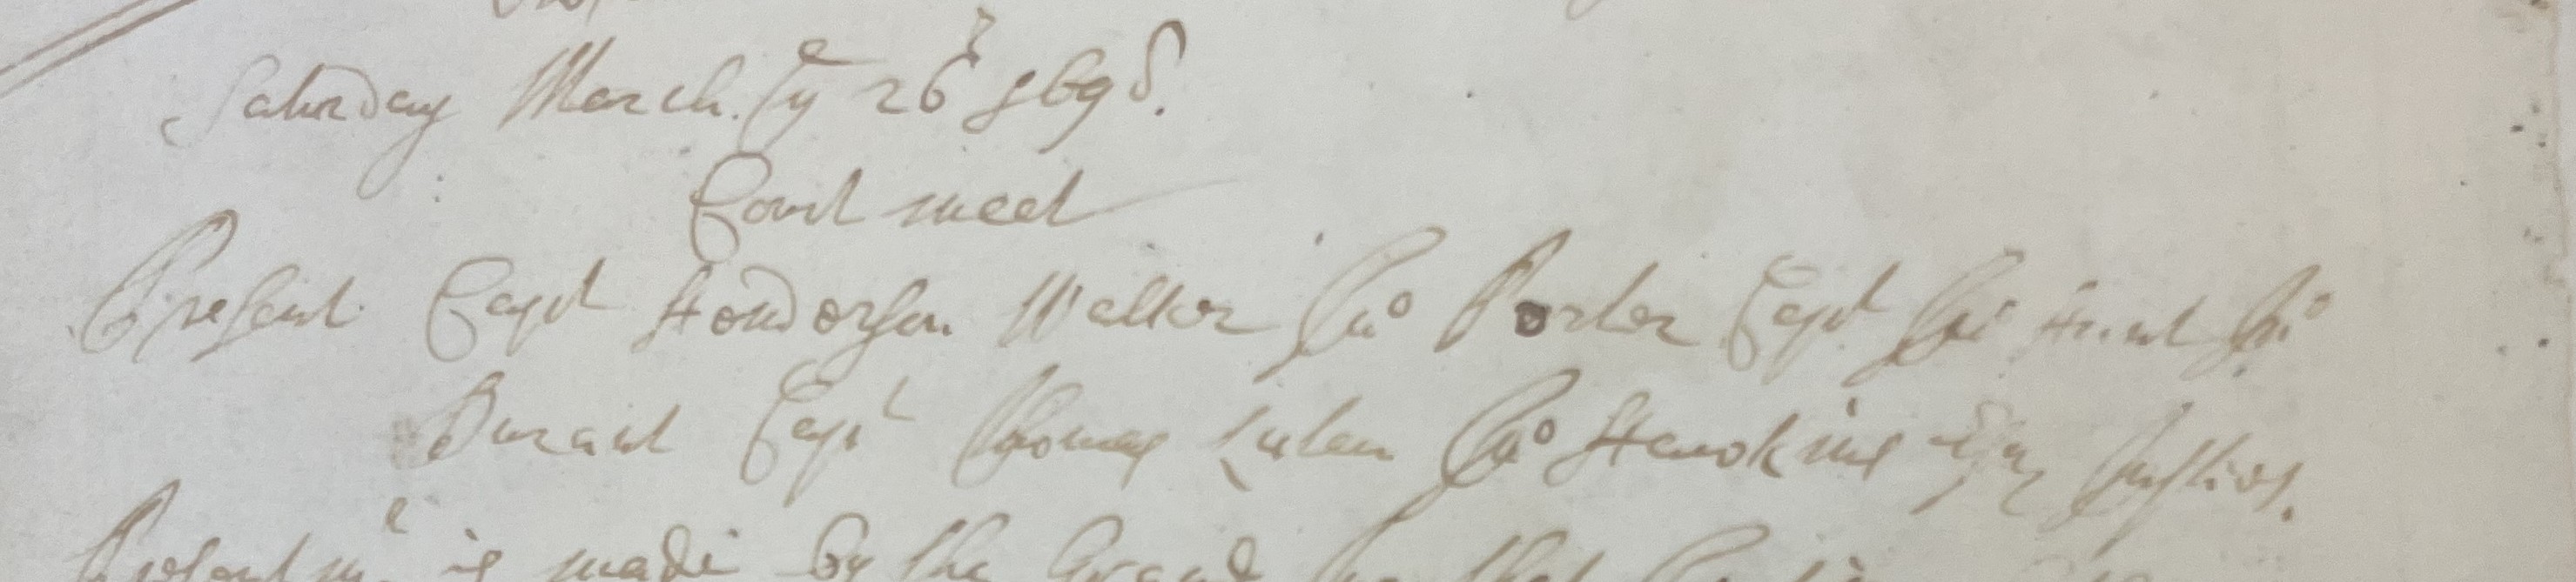 Saturday March ye 26th 1698.
Court meet
Present Capt Henderson Walker Jno Porter Capt Jno Hunt Jno
Durant Capt Thomas Luten Jno Hawkins Esqr Justices.
Presentmt is made by the Grand Jury that